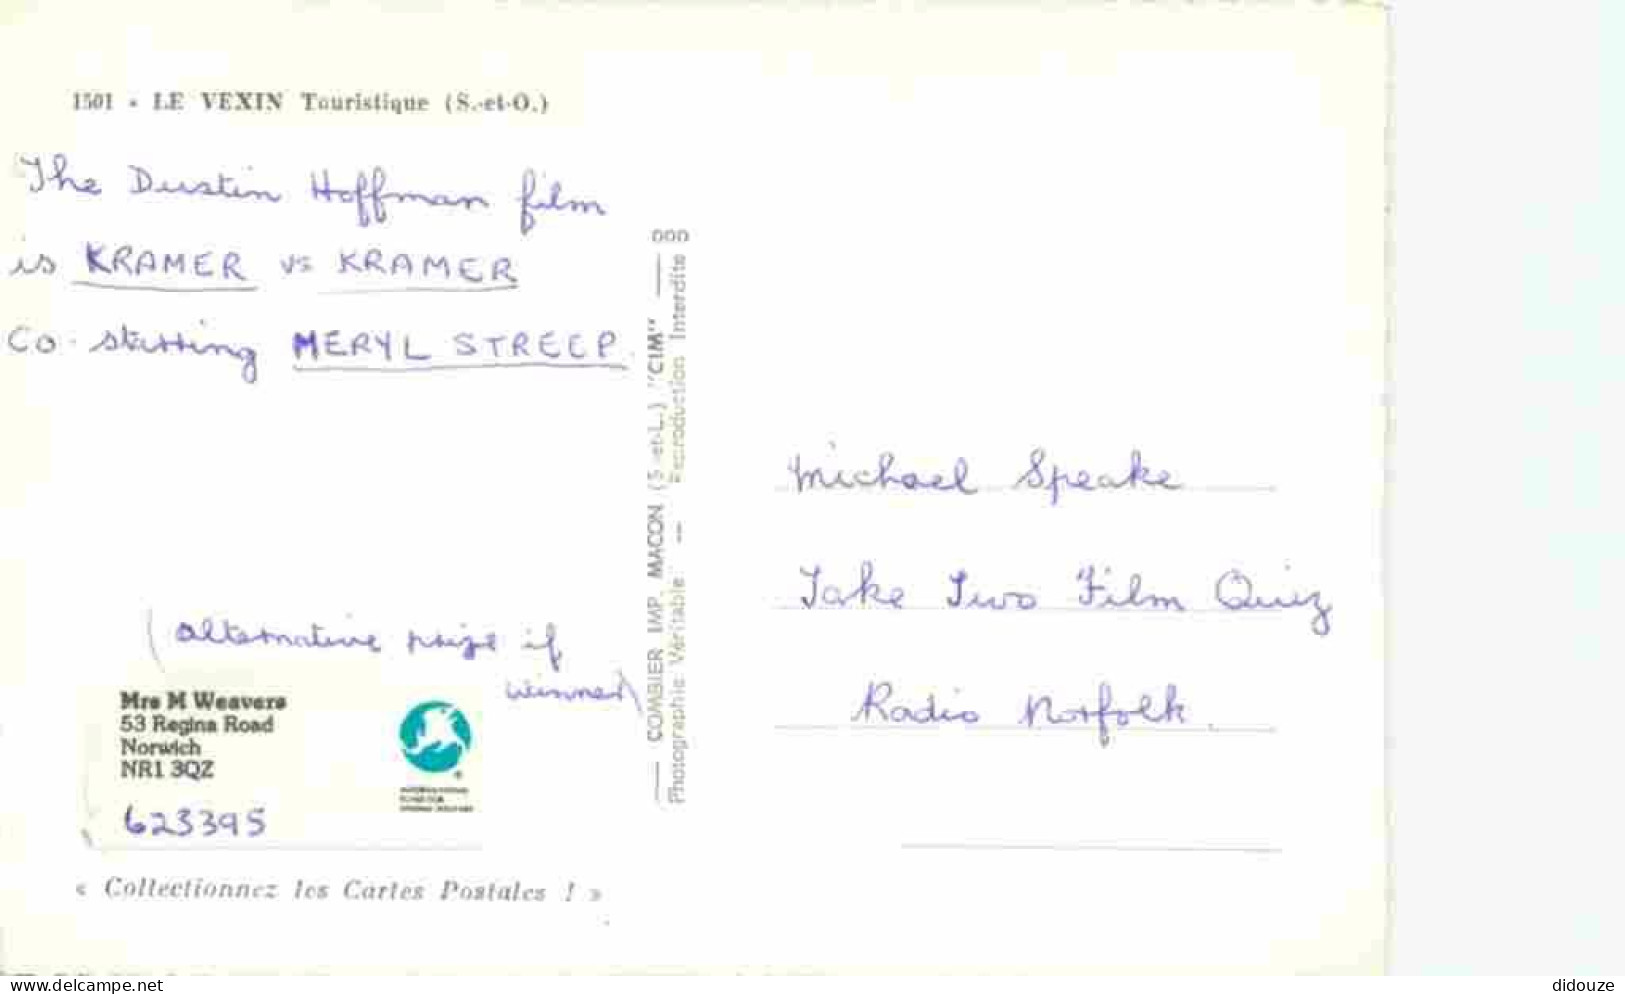 1501 - LE VEXIN Touristique (S.-et-O.)
The Dustin Hoffman film
is KRAMER vs KRAMER
Co-starring MERYL STREEP.
(alternative prize if
winner)
Mrs M Weavers
53 Regina Road
Norwich
NR1 3QZ
623395
« Collectionnez les Cartes Postales ! »
COMBIER IMP. MACON (S.-et-L.) "CIM"
Photographie Véritable -- Reproduction Interdite
Michael Speake
Take Two Film Quiz
Radio Norfolk.
www.delcampe.net
didouze